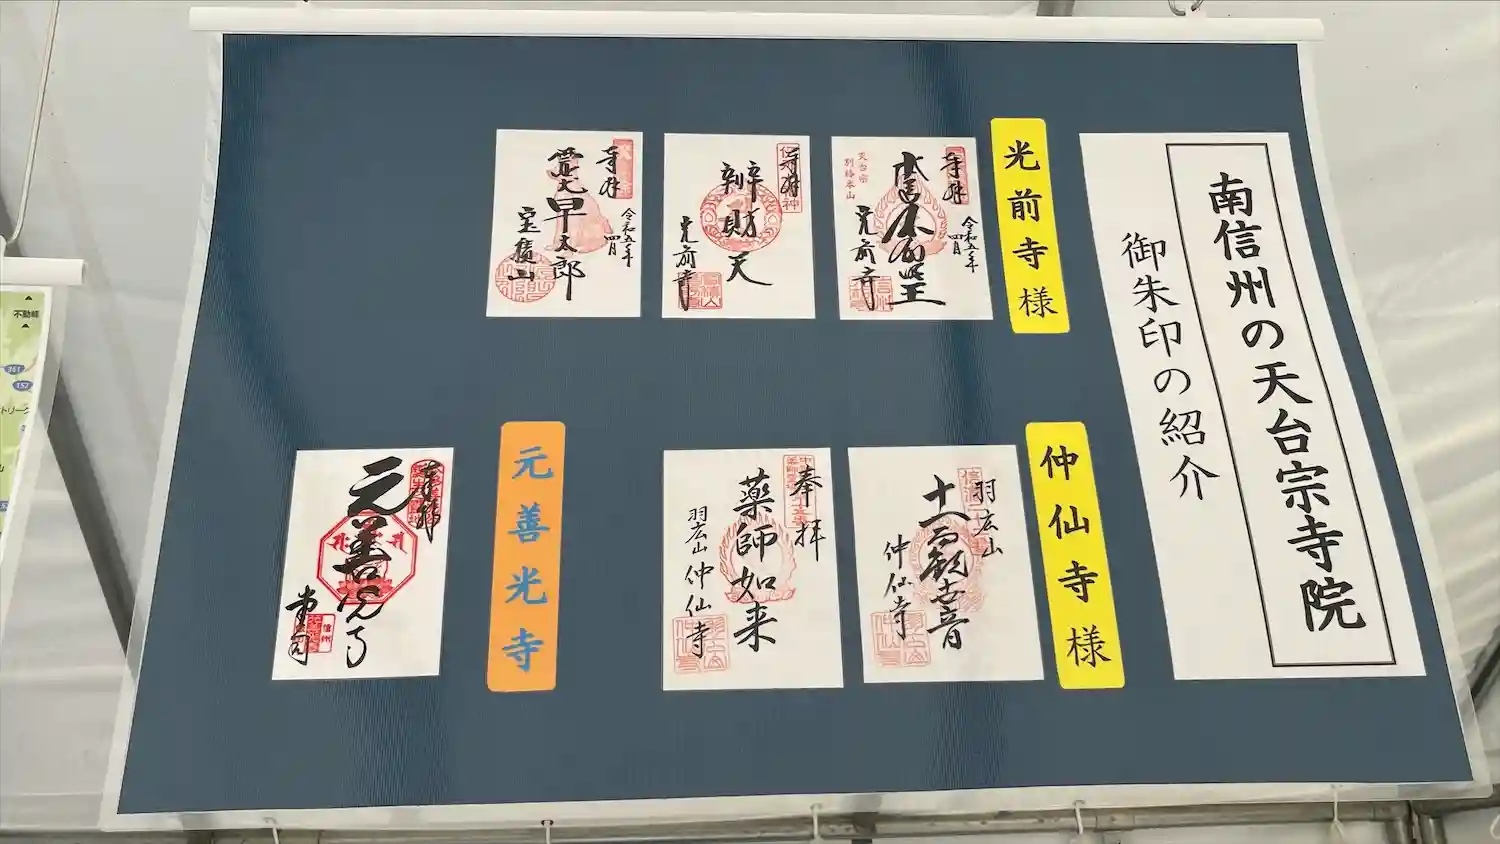 南信州の天台宗寺院
御朱印の紹介
光前寺様
奉拝
令和五年
四月
天台宗
別格本山
光前寺
奉拝
辨財天
光前寺
奉拝
令和五年
四月
霊犬早太郎
宝積山
仲仙寺様
羽広山
十一面観世音
仲仙寺
奉拝
薬師如来
羽広山
仲仙寺
元善光寺
奉拝
元善光寺
信州
不動峰
361
152